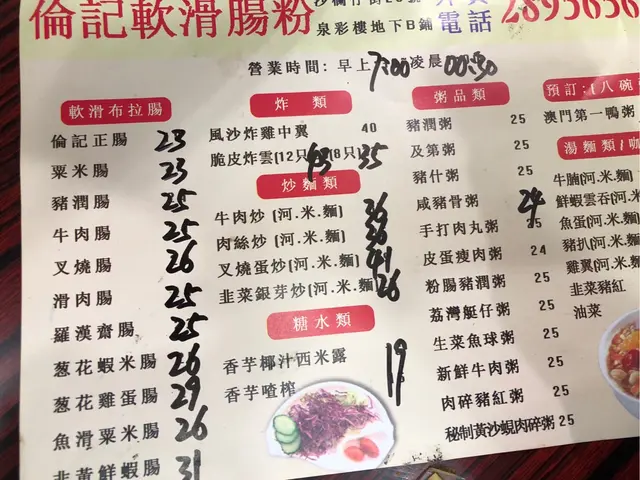 倫記軟滑腸粉
泉彩樓地下B鋪
電話
營業時間: 早上7:00凌晨00:30
軟滑布拉腸
倫記正腸 23
粟米腸 23
豬潤腸 25
牛肉腸 25
叉燒腸 26
滑肉腸 25
羅漢齋腸 25
葱花蝦米腸 26
葱花雞蛋腸 29
魚滑粟米腸 26
韭黃鮮蝦腸 31
炸類
風沙炸雞中翼 40
脆皮炸雲(12只) (8只) 35
炒麵類
牛肉炒(河.米.麵) 36
肉絲炒(河.米.麵) 36
叉燒蛋炒(河.米.麵) 41
韭菜銀芽炒(河.米.麵) 26
糖水類
香芋椰汁西米露 19
香芋喳榨
粥品類
豬潤粥 25
及第粥 25
豬什粥 25
咸豬骨粥 24
手打肉丸粥 25
皮蛋瘦肉粥 24
粉腸豬潤粥 25
荔灣艇仔粥 25
生菜魚球粥 25
新鮮牛肉粥 25
肉碎豬紅粥 25
秘制黃沙蜆肉碎粥 25
預訂:(八碗
澳門第一鴨粥
湯麵類(咖
牛腩(河.米
鮮蝦雲吞(河.米
魚蛋(河.米
豬扒(河.米
雞翼(河.米
韭菜豬紅
油菜